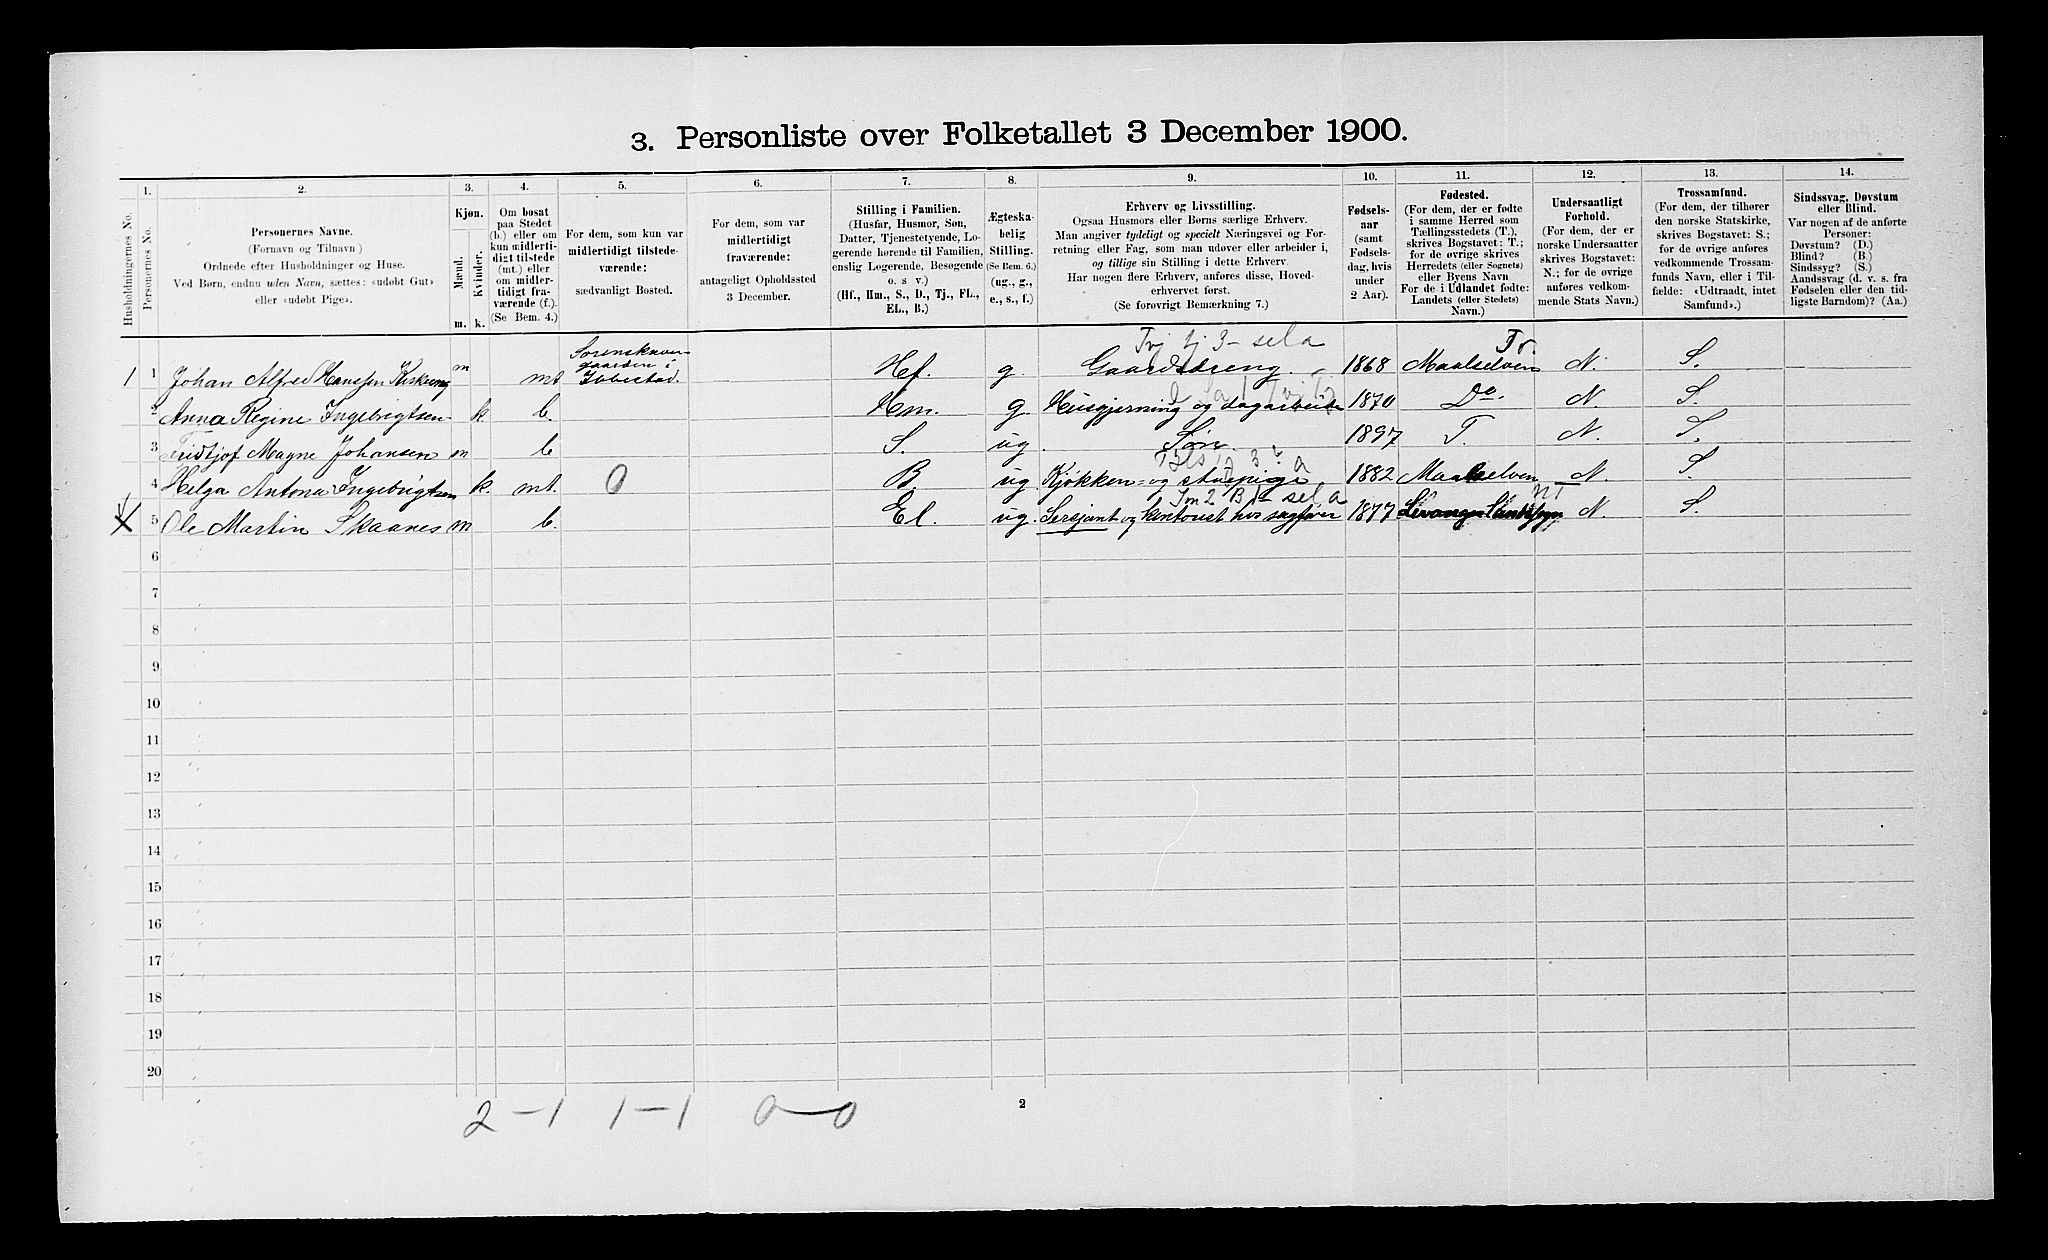 3. Personliste over Folketallet 3 December 1900.
1. 2. 3. 4. 5. 6. 7. 8. 9. 10. 11. 12. 13. 14.
Husholdningernes No.
Personernes No.
Personernes Navne.
(Fornavn og Tilnavn)
Ordnede efter Husholdninger og Huse.
Ved Børn, endnu uden Navn, sættes: «udøbt Gut»
eller «udøbt Pige».
Kjøn.
Mænd.
Kvinder.
m. k.
Om bosat
paa Stedet
(b.) eller om
kun midlerti-
digt tilstede
(mt.) eller
om midler-
tidigt fra-
værende (f.).
(Se Bem. 4.)
For dem, som kun var
midlertidigt tilstede-
værende:
sædvanligt Bosted.
For dem, som var
midlertidigt
fraværende:
antageligt Opholdssted
3 December.
Stilling i Familien.
(Husfar, Husmor, Søn,
Datter, Tjenestetyende, Lo-
gerende hørende til Familien,
enslig Logerende, Besøgende
o. s v.)
(Hf., Hm., S., D., Tj., FL.,
EL., B.)
Ægteska-
belig
Stilling.
(Se Bem. 6.)
(ug., g.,
e., s., f.)
Erhverv og Livsstilling.
Ogsaa Husmors eller Børns særlige Erhverv.
Man angiver tydeligt og specielt Næringsvei og For-
retning eller Fag, som man udøver eller arbeider i,
og tillige sin Stilling i dette Erhverv.
Har nogen flere Erhverv, anføres disse, Hoved-
erhvervet først.
(Se forøvrigt Bemærkning 7.)
Fødsels-
aar
(samt
Fødsels-
dag, hvis
under
2 Aar).
Fødested.
(For dem, der er fødte
i samme Herred som
Tællingsstedets (T.),
skrives Bogstavet: T.;
for de øvrige skrives
Herredets (eller Sognets)
eller Byens Navn
For de i Udlandet fødte:
Landets (eller Stedets)
Navn.)
Undersaatligt
Forhold.
(For dem, der er
norske Undersaatter
skrives Bogstavet:
N.; for de øvrige
anføres vedkom-
mende Stats Navn.)
Trossamfund.
(For dem, der tilhører
den norske Statskirke,
skrives Bogstavet: S.;
for de øvrige anføres
vedkommende Trossam-
funds Navn, eller i Til-
fælde: «Udtraadt, intet
Samfund».)
Sindssvag, Døvstum
eller Blind.
Var nogen af de anførte
Personer:
Døvstum? (D.)
Blind? (B.)
Sindssyg? (S.)
Aandssvag (d. v. s. fra
Fødselen eller den tid-
ligste Barndom)? (Aa.)
Tvj tj 3- sela Tr.
1 1 Johan Alfred Hanssen m mt Sorenskriver-gaarden i Ibbestad. Hf. g. Gaardsdreng. 1868 Maalselven N. S.
2 Anna Regine Ingebrigtsen k b. Hm. g. Husgjerning og dagarbeide 1870 Do. N. S.
3 Fridtjof Magne Johansen m b S. ug. Søn 1897 T. N. S.
4 Helga Antona Ingebrigtsen k. mt. 0 B. ug. Kjøkken- og stuepige 1882 Maalselven N. S.
sela NT
X 5 Ole Martin Skaanes m b. El. ug. Sersjant og kontorist hos sagfører 1877 N. S.
6
7
8
9
10
11
12
13
14
15
16
17
18
19
20
2-1 1-1 0-0
2